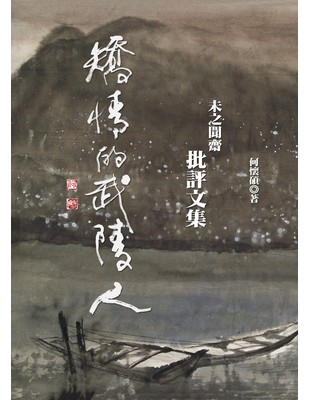 矯情的武陵人
未之聞齋
批評文集
何懷碩◎著